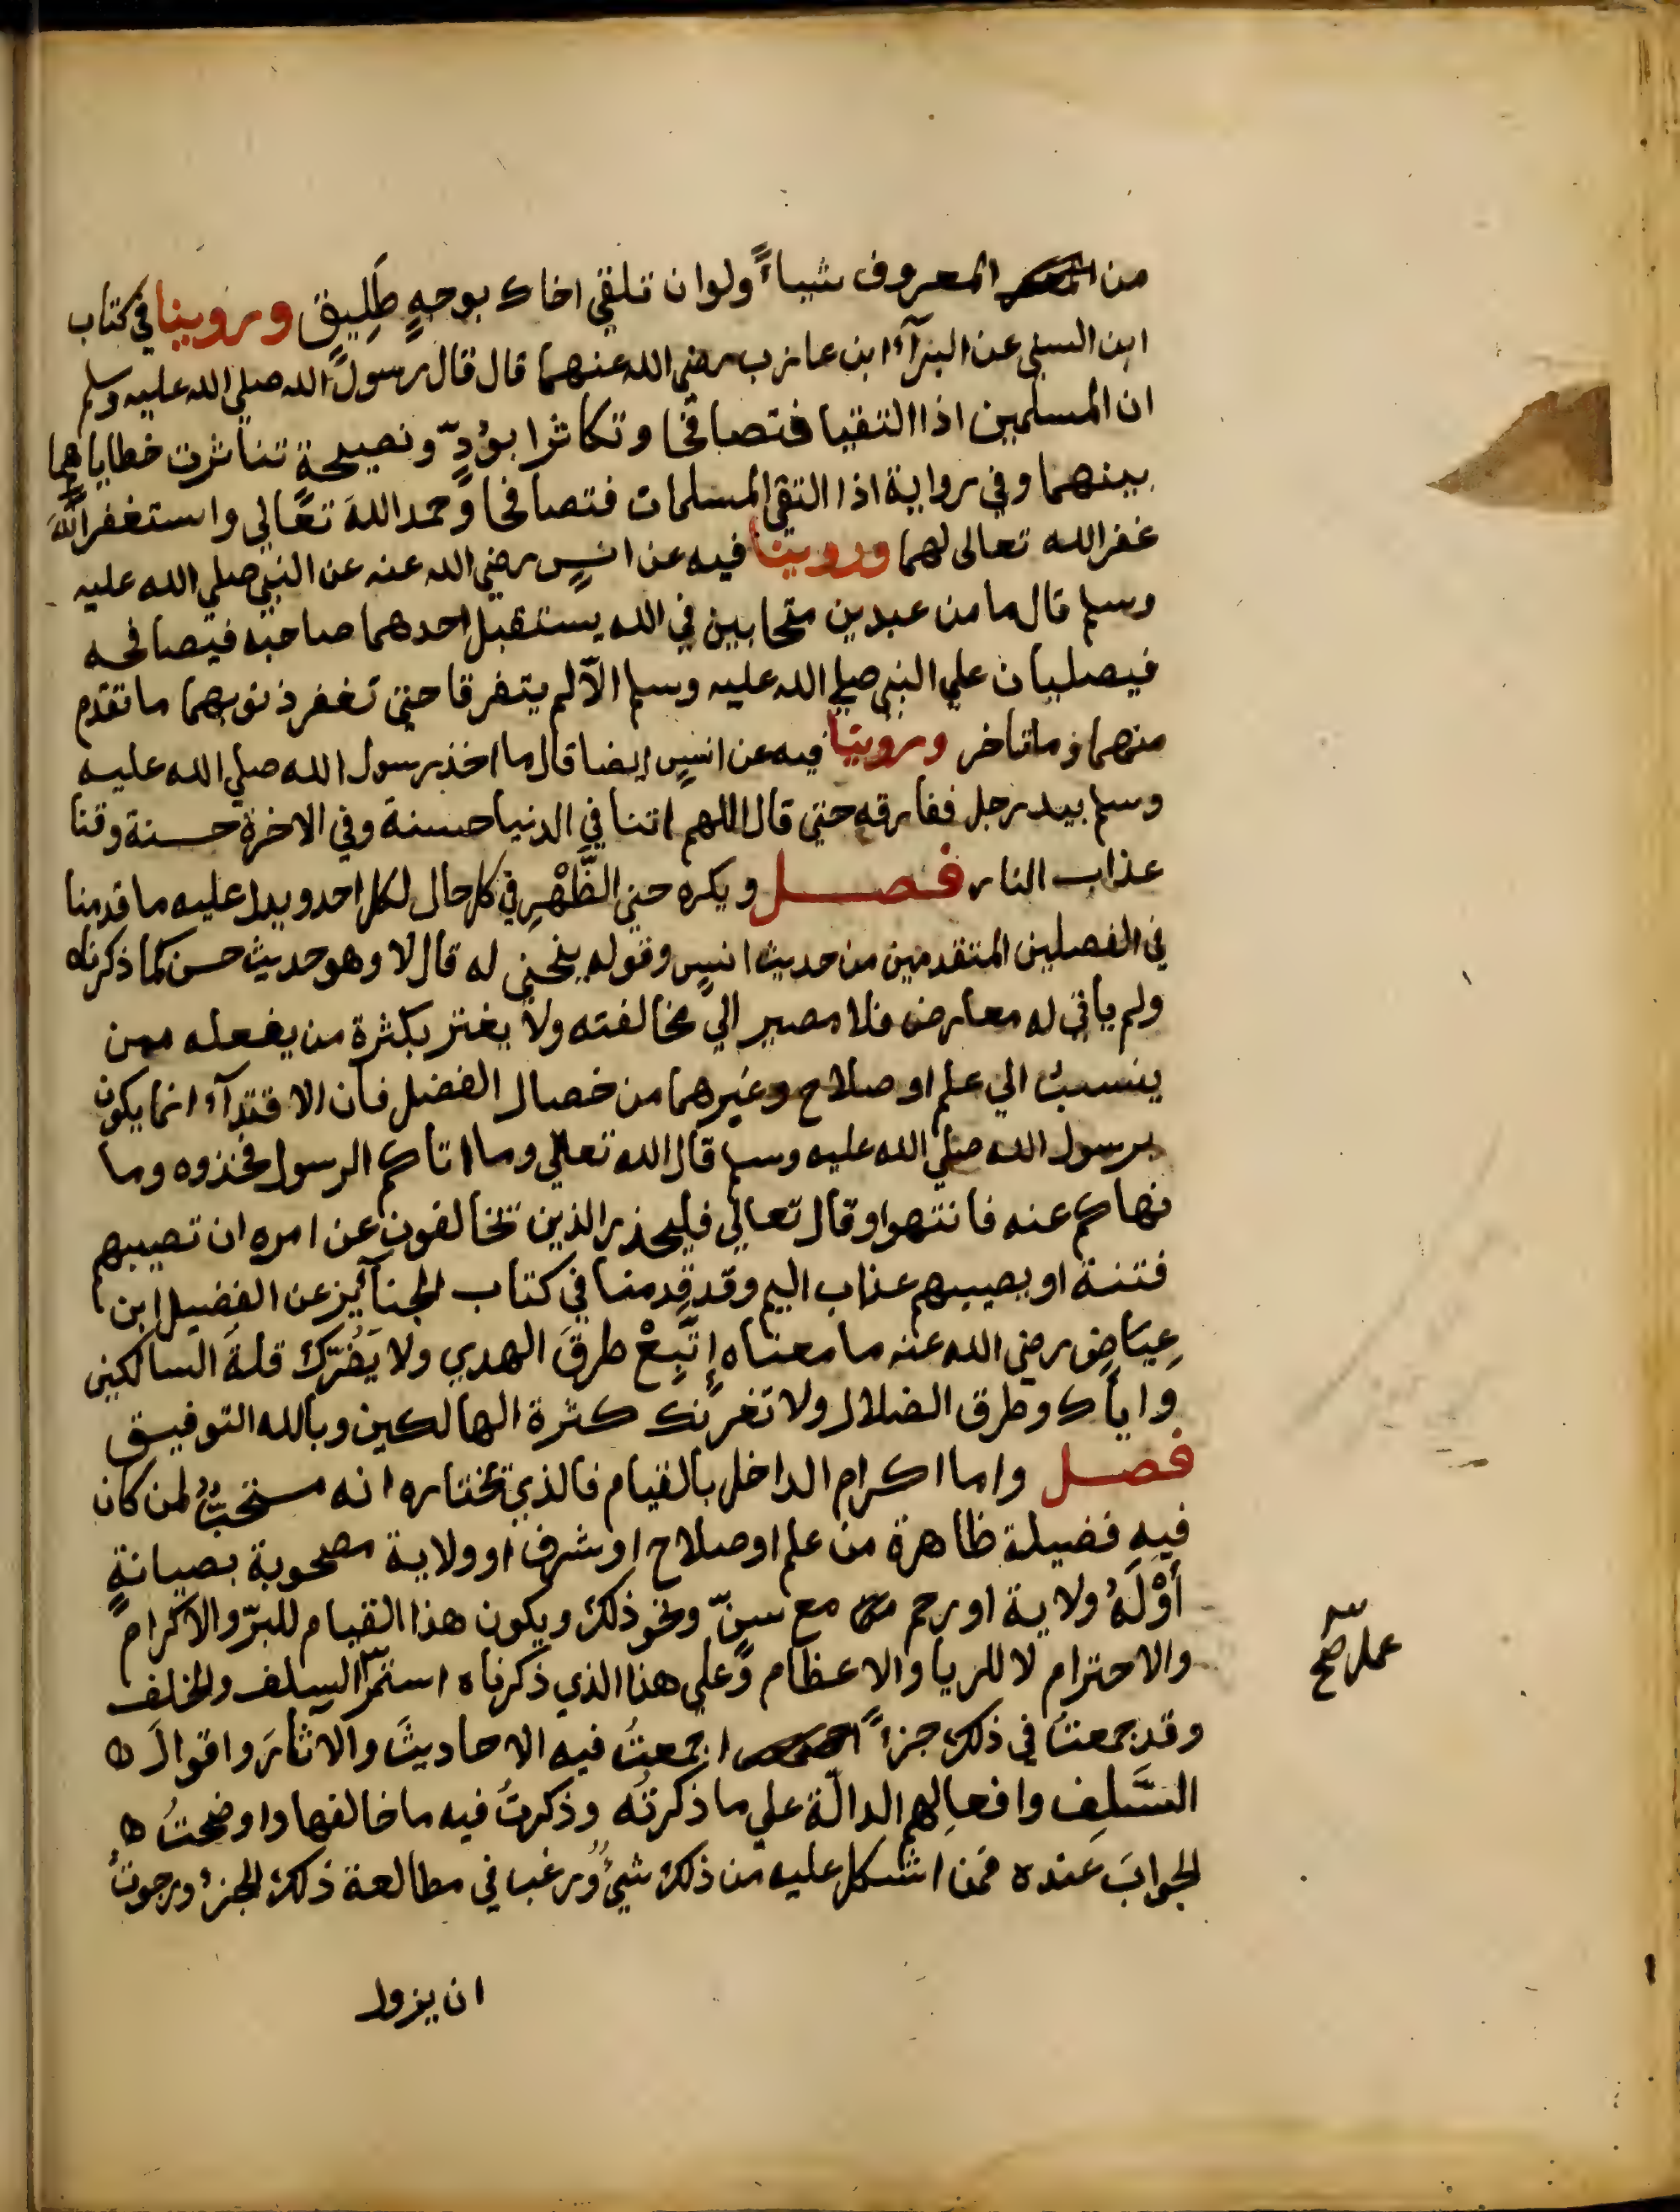 من المعروف شياءً ولو ان تلقي اخاك بوجهٍ طَلِيق وروينا في كتاب
ابن السني عن البرآء ابن عازب رضي الله عنهما قال قال رسول الله صلي الله عليه وسلم
ان المسلمين اذا التقيا فتصافحا وتكاثرا بوُدٍّ ونصيحةٍ تناثرت خطاياهما
بينهما وفي رواية اذا التقي المسلمان فتصافحا وحمدا اللهَ تعالي واستغفرا اللهَ
غفر الله تعالى لهما وروينا فيه عن انسٍ رضي الله عنه عن النبي صلي الله عليه
وسلم قال ما من عبدين متحابين في الله يستقبل احدهما صاحبه فيصافحه
فيصليان علي النبي صلي الله عليه وسلم الّا لم يتفرقا حتي تغفر ذنوبهما ما تقدم
منهما وما تاخر وروينا فيه عن انسٍ ايضا قال ما اخذ رسول الله صلي الله عليه
وسلم بيد رجل ففارقه حتي قال اللهم اتنا في الدنيا حسنة وفي الاخرة حسنة وقنا
عذاب النار فصل ويكره حني الظَّهْرِ في كل حال لكل احد ويدل عليه ما قدمنا
في الفصلين المتقدمين من حديث انسٍ وقوله ينحني له قال لا وهو حديث حسن كما ذكرناه
ولم ياتي له معارض فلا مصير الي مخالفته ولا يغتر بكثرة من يفعله ممن
ينسبُ الي علم او صلاح وغيرهما من خصال الفضل فان الاقتدآء انما يكون
برسول الله صلي الله عليه وسلم قال الله تعالي وما اتاكم الرسول فخذوه وما
نهاكم عنه فانتهوا وقال تعالي فليحذر الذين تخالفون عن امره ان تصيبهم
فتنة او يصيبهم عذاب اليم وقد قدمنا في كتاب الجنآئز عن الفضيل ابن
عِيَاضٍ رضي الله عنه ما معناه اِتَّبِعْ طرقَ الهدي ولا يَضُرّك قلةَ السالكين
واياك وطرق الضلال ولا تغرنك كثرة الهالكين وبالله التوفيق
فصل واما اكرام الداخل بالقيام فالذي نختاره انه مستحبٌّ لمن كان
فيهِ فضيلة ظاهرة من علم او صلاح او شرف او ولاية مصحوبة بصيانةٍ
أوْلَهُ ولاية او رحم مع سنٍّ ونحو ذلك ويكون هذا القيام للبرّ والاكرام
والاحترام لا للريا والاعظام وعلي هذا الذي ذكرناه استمرّ السلف والخلف
عمل صح
وقد جمعتُ في ذلك جزءاً جمعتُ فيه الاحاديثَ والاثارَ واقوالَ
السَّلفِ وافعالِهم الدالّة علي ما ذكرتُه وذكرتُ فيه ما خالفها واوضحتُ
الجوابَ عنده فمن اشكل عليه من ذلك شيءٌ ورغب في مطالعة ذلك الجزء ورجوتُ
ان يزول